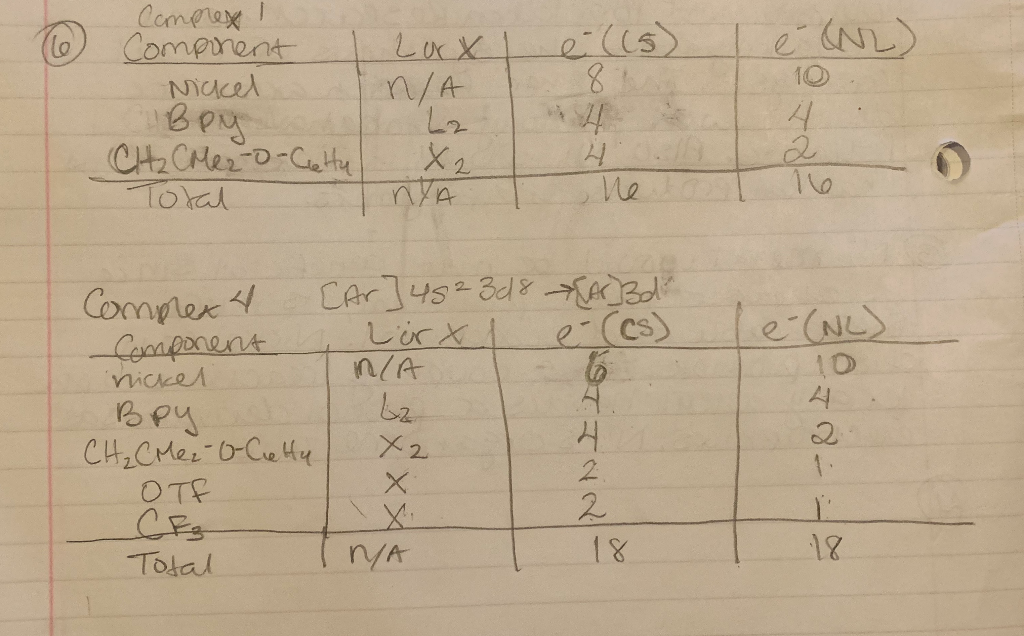 Complex 1
⑥ Component L or X e⁻(CS) e⁻(NL)
Nickel n/A 8 10
Bpy L₂ 4 4
CH₂CMe₂-O-C₆H₄ X₂ 4 2
Total n/A 16 16
Complex 4 [Ar]4s²3d8 → [Ar]3d
Component L or X e⁻(CS) e⁻(NL)
nickel n/A 6 10
Bpy L₂ 4 4
CH₂CMe₂-O-C₆H₄ X₂ 4 2
OTF X 2 1
CF₃ X 2 1
Total n/A 18 18